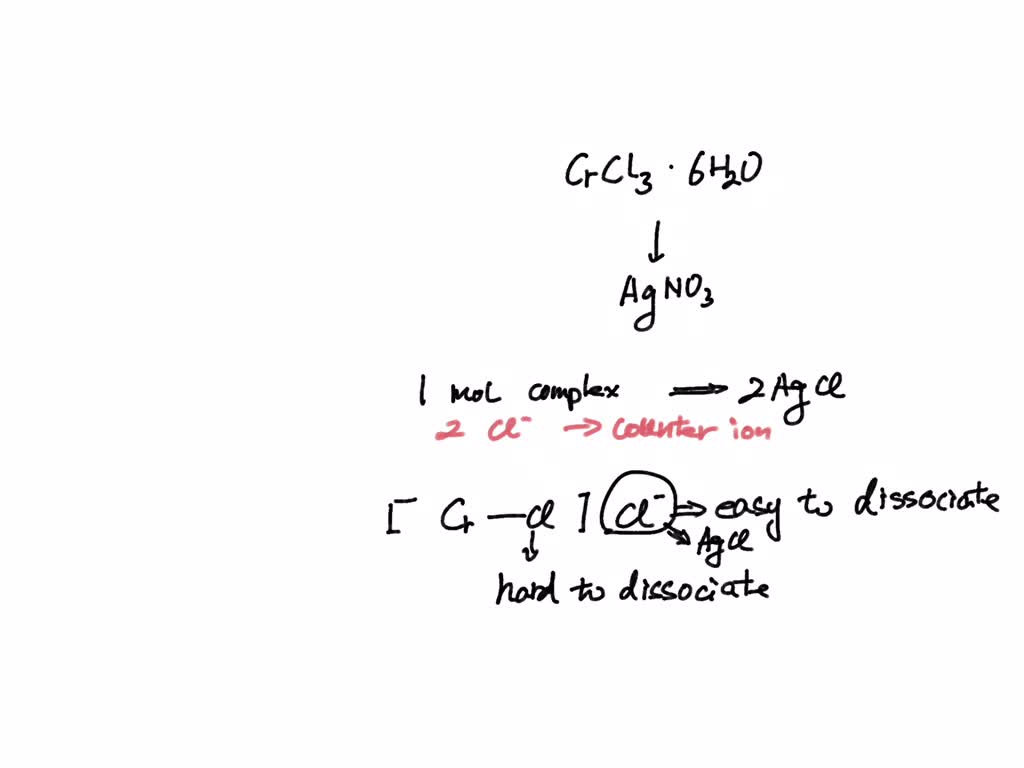 CrCl₃ · 6H₂O
↓
AgNO₃
1 mol complex → 2AgCl
2 Cl⁻ → counter ion
[ Cr — Cl ] Cl⁻ ⇒ easy to dissociate
↓ ↘ AgCl
hard to dissociate